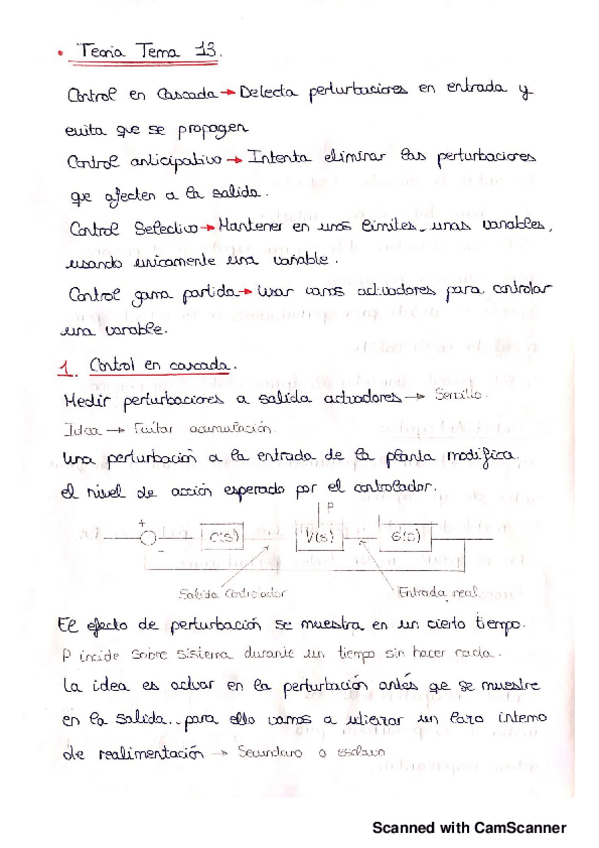 • Teoria Tema 13.
Control en Cascada → Detecta perturbaciones en entrada y
evita que se propagen
Control anticipativo → Intenta eliminar las perturbaciones
que afecten a la salida.
Control Selectivo → Mantener en unos límites, unas variables,
usando unicamente una variable.
Control gama partida → Usar varios actuadores para controlar
una variable.
1. Control en cascada.
Medir perturbaciones a salida actuadores → Sencillo.
Idea → Evitar acumulación.
Una perturbación a la entrada de la planta modifica
el nivel de acción esperado por el controlador.
P
+
C(s) V(s) G(s)
-
Salida Controlador Entrada real
El efecto de perturbación se muestra en un cierto tiempo.
P incide sobre sistema durante un tiempo sin hacer nada.
La idea es actuar en la perturbación antes qe se muestre
en la salida.. para ello vamos a utilizar un lazo interno
de realimentación → Secundario o esclavo
Scanned with CamScanner